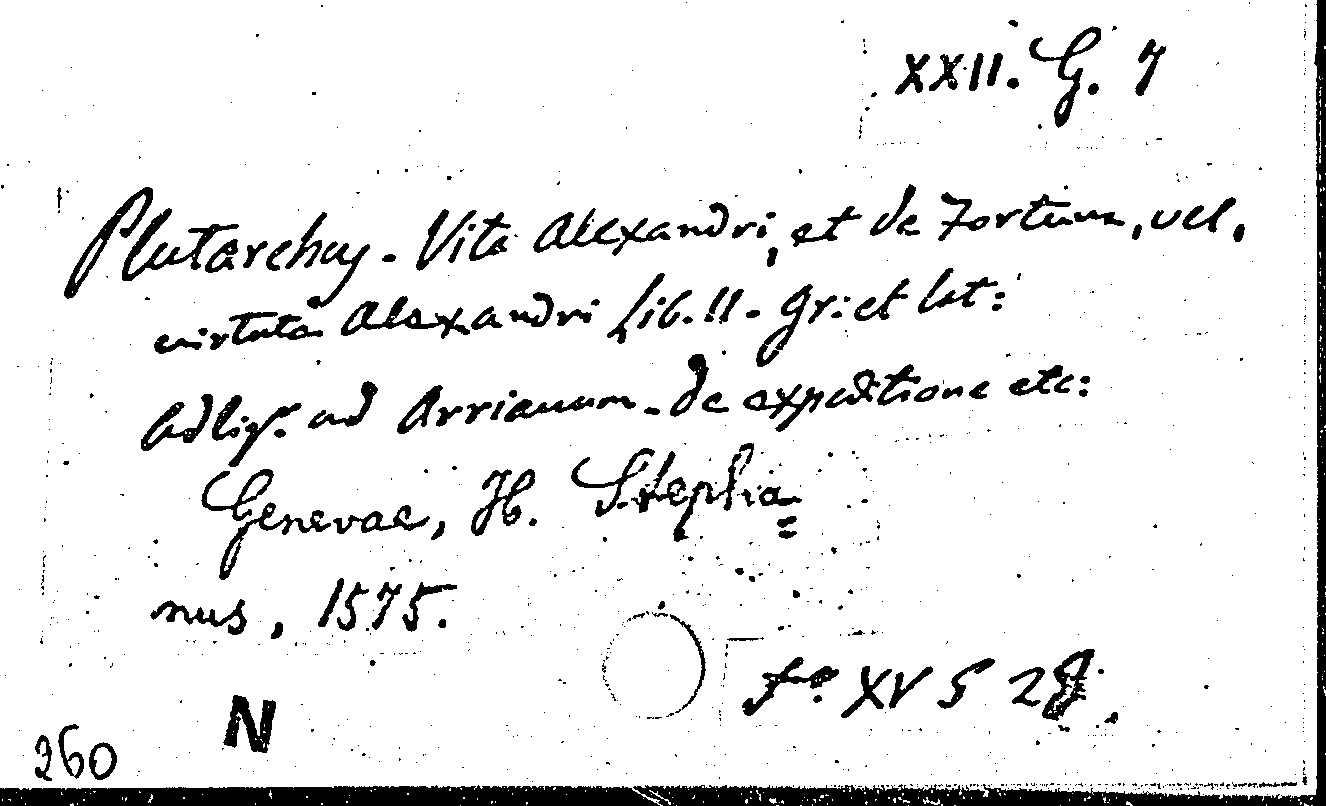 XXII. G. 7
Plutarchus. Vita Alexandri, et de Fortuna, vel.
virtute Alexandri Lib. II. Gr: et lat:
Adlig. ad Arrianum. de expeditione etc:
Genevae, H. Stepha=
nus, 1575.
fo. XV S 28.
N
260